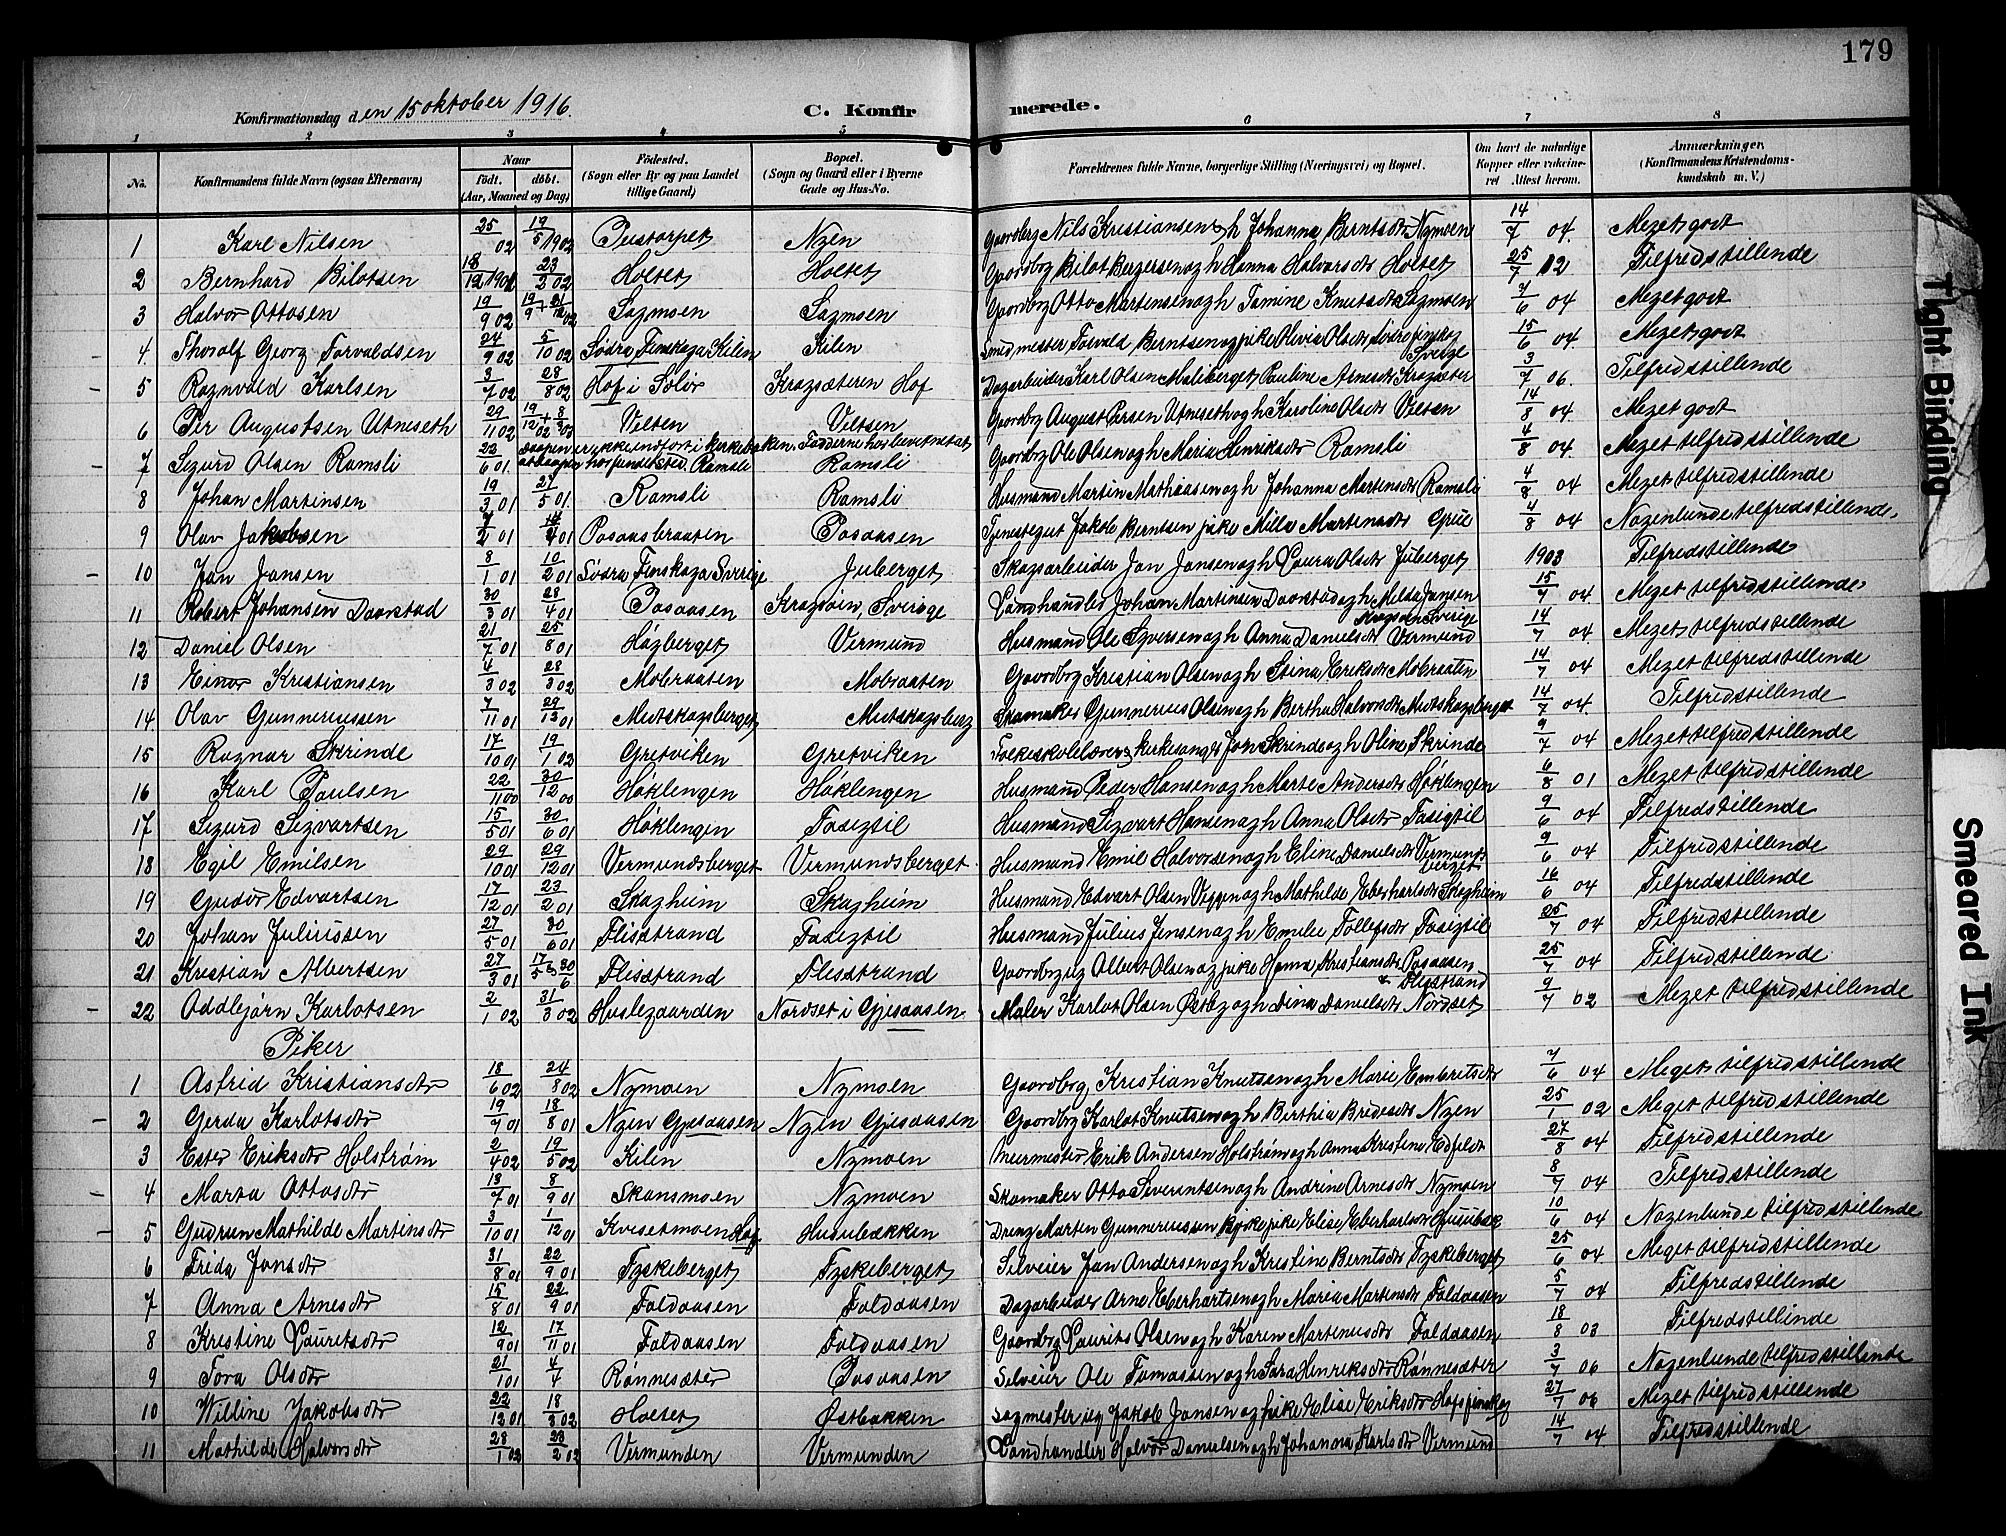 179
Konfirmationsdag den 15 oktober 1916.
C. Konfirmerede.
1 2 3 4 5 6 7 8
No. Konfirmandens fulde Navn (ogsaa Efternavn) Naar født. døbt. (Aar, Maaned og Dag) Fødested. (Sogn eller By og paa Landet tillige Gaard) Bopæl. (Sogn og Gaard eller i Byerne Gade og Hus-No. Forældrenes fulde Navne, borgerlige Stilling (Næringsvei) og Bopæl. Om havt de naturlige Kopper eller vakcineret Attest herom. Anmærkninger (Konfirmandens Kristendomskundskab m. V.)
1 Karl Nilsen 25/ 02 19/5 1902 Nyen Gaardbrg Nils Kristiansen og h Johanna Berntsdtr Nymoen 14/7 04. Meget godt
2 Bernhard Bilotsen 18/12 1901 23/2 02 Holtet Holtet Gaardbrg Bilot Bergersen og h Hanna Halvorsdtr Holtet 25/7 12 Tilfredstillende
3 Halvor Ottosen 19/9 02 Sagmoen Sagmoen Gaardbrg Otto Martensen og h Tomine Knutsdtr Sagmoen 7/6 04 Meget godt
4. Thoralf Georg Torvaldsen 24/9 02 5/10 02 Södra Finskoga Kilen Kilen Smidmester Torvald Berntsen og pike Olsdtr Södra Finskog Sverge 15/6 04. Meget godt
5 Ragnvald Karlsen 3/7 02 28/8 02 Hof i Solør Kragsæteren Hof Dagarbeider Karl Olsen Maliberget Pauline Arnesdtr Kragsæter 3/7 06. Tilfredstillende
6 Per Augustsen Utneseth 29/11 02 Velten Veltsen Gaardbrg August Persen Utneseth og h Karoline Olsdtr Velten 14/8 04. Meget godt
7 Sigurd Olsen Ramsli 23/6 01 Daapen er ikke indført i kirkeboken. Fadderne har bevitnet at daapen har fundet sted. Ramsli Ramsli Gaardbrg Ole Olsen og h Maria Henriksdtr Ramsli 4/8 04 Meget tilfredstillende
8 Johan Martinsen 19/3 01 27/5 01 Ramsli Ramsli Husmand Martin Mathiasen og h Johanna Martensdtr Ramsli 4/8 04 Meget tilfredstillende
9 Olav Jakobsen 7/2 01 14/4 01 Posaasbraaten Posaasen Tjenestegut Jakob Berntsen pike Milla Martensdtr Grue 4/8 04 Nogenlunde tilfredstillende.
10 Jan Jansen 8/1 01 10/2 01 Södra Finskoga Sverige Juberget Skogsarbeider Jan Jansen og h Laura Olsdtr Juberget 1903 Tilfredstillende
11 Robert Johansen Daarstad 30/3 01 28/4 01 Posaasen Kragsøen, Sverige Landhandler Johan Martinsen Daarstad og h Milda Jansen Kragsøen Sverige 15/7 04 Meget tilfredstillende
12 Daniel Olsen 21/7 01 25/8 01 Høgberget Vermund Husmand Ole Syversen og h Anna Danielsdtr Vermund 14/7 04. Meget tilfredstillende
13 Einar Kristiansen 4/3 02 28/3 02 Mobraaten Mobraaten Gaardbrg Kristian Olsen og h Stina Eriksdtr Mobraaten 14/7 04 Meget tilfredstillende
14. Olav Gunneriussen 7/11 01 29/13 01 Mutskogsberget Mutskogsberg Skomaker Gunnerius Olsen og h Bertha Halvorsdtr Mutskogsberget 14/7 04. Tilfredstillende
15 Ragnar Skrinde 17/10 01 19/1 02 Gretviken Gretviken Folkeskolelærer & kirkesanger Jon Skrinde og h Oline Skrinde 9/7 04 Meget tilfredstillende
16 Karl Paulsen 22/11 00 30/12 00 Høklengen Høklengen Husmand Peder Hansen og h Marte Andersdtr Høklengen 6/8 01 Meget tilfredstillende
17 Sigurd Sigvartsen 15/5 01 30/6 01 Høklengen Fasigtil Husmand Sigvart Hansen og h Anna Olsdtr Fasigtil 9/6 04 Tilfredstillende
18 Egil Emilsen 29/10 01 29/12 01 Vermundsberget Vermundsberget Husmand Emil Halvorsen og h Eline Danielsdtr Vermundsberget 9/6 04 Tilfredstillende
19 Gudor Edvartsen 17/12 01 23/2 01 Skogheim Skogheim Husmand Edvart Olsen Viggen og h Mathilde Eberhartsdtr Skogheim 16/6 04 Tilfredstillende
20 Johan Juliussen 27/5 01 30/6 01 Flisstrand Fasigtil Husmand Julius Jensen og h Emelie Tollefsdtr Fasigtil 25/7 04 Tilfredstillende
21 Kristian Albertsen 27/3 01 Flisstrand Flisstrand Gaardbrg ug Albert Olsen og pike Hanna Kristiansdtr Posaasen Flisstrand 25/7 04 Tilfredstillende
22 Oddbjørn Karlotsen 2/1 02 31/3 02 Huslegaarden Nordset i Gjesaasen Maler Karlot Olsen Østby og h Dina Danielsdtr Nordset 9/7 02 Meget tilfredstillende
Piker
1 Astrid Kristiansdtr 18/6 02 24/8 02 Nymoen Nymoen Gaardbrg. Kristian Knutsen og h Marie Embretsdtr 7/6 04 Meget tilfredstillende
2 Gerda Karlotsdtr 19/7 01 18/8 01 Nyen Gjesaasen Nyen Gjesaasen Gaardbrg Karlot Knutsen og h Berthia Bredesdtr Nyen 25/1 02 Meget tilfredstillende
3 Ester Eriksdtr Holstrøm 2/4 02 19/5 02 Kilen Nymoen Murmester Erik Andersen Holstrøm og h Anna Kristine Edfeldt 27/8 04 Tilfredstillende
4 Marta Ottosdtr 13/7 01 8/9 01 Skansmoen Nymoen Skomaker Otto Severintsen og h Andrine Arnesdtr Nymoen 8/7 04 Tilfredstillende
5 Gudrun Mathilde Martinsdtr 3/10 01 1/12 01 Kvisetmoen Hof Husubækken Dreng Marten Gunneriussen pike Elise Eberhartsdtr 10/6 04 Nogenlunde tilfredstillende
6 Frida Jonsdtr 31/8 01 22/9 01 Fyskeberget Fyskeberget Selveier Jan Andersen og h Kristine Berntsdtr Fyskeberget 25/6 04 Meget tilfredstillende
7 Anna Arnesdtr 15/8 01 22/9 01 Foldaasen Foldaasen Dagarbeider Arne Eberhartsen og h Maria Martensdtr Foldaasen 5/7 04 Tilfredstillende
8 Kristine Lauritsdtr 12/9 01 17/11 01 Foldaasen Foldaasen Gaardbrg Laurits Olsen og h Karen Martinusdtr Foldaasen 18/8 03 Tilfredstillende
9 Tora Olsdtr 21/1 01 4/4 Rønnesæter Posaasen Selveier Ole Tomassen og h Sara Henriksdtr Rønnesæter 3/7 06 Nogenlunde tilfredstillende
10 Willine Jakobsdtr 22/12 01 18/3 02 Holtet Østbakken Sagmester ug Jakob Jansen og pike Elise Eriksdtr Hofs finskog 27/7 06 Meget tilfredstillende
11 Mathilde Halvorsdtr 28/1 02 23/2 02 Vermunden Vermunden Landhandler Halvor Danielsen og h Johanna Karlsdtr Vermund 14/7 04 Tilfredstillende
Tight Binding
Smeared Ink